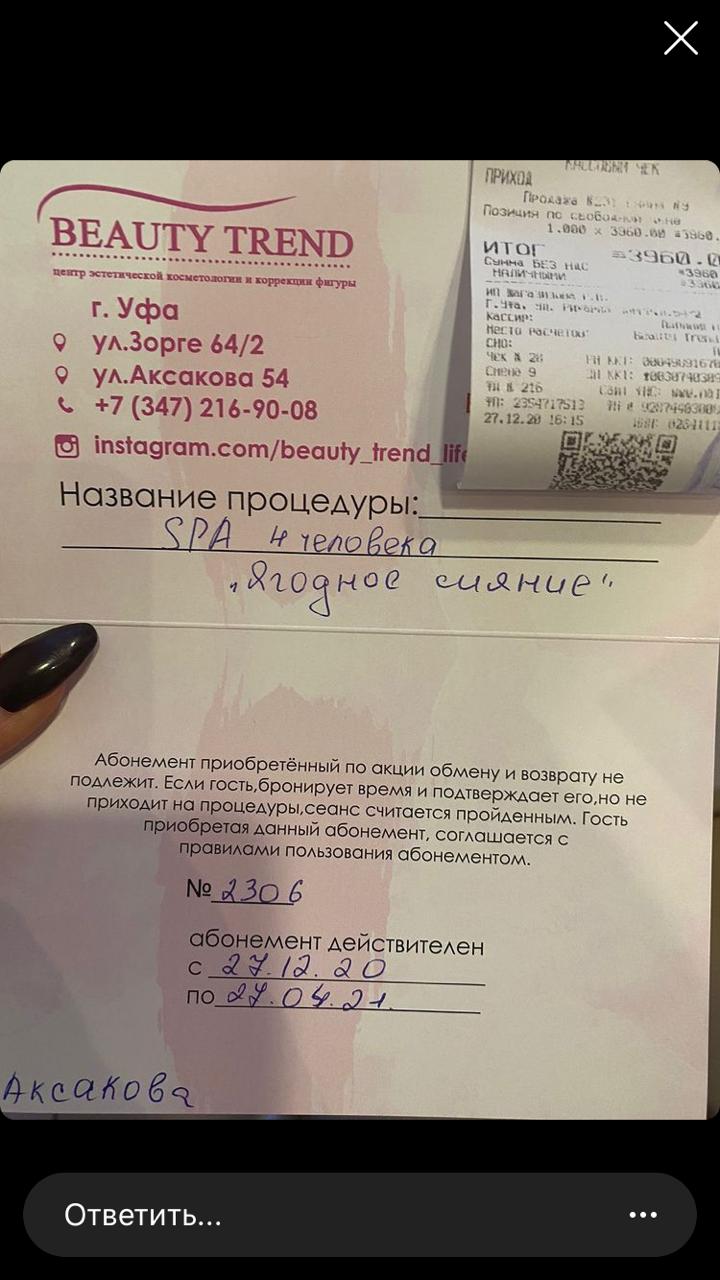 BEAUTY TREND
центр эстетической косметологии и коррекции фигуры
г. Уфа
ул.Зорге 64/2
ул.Аксакова 54
+7 (347) 216-90-08
instagram.com/beauty_trend_life
КАССОВЫЙ ЧЕК
ПРИХОД
Продажа
Позиция по свободной цене
1.000 x 3960.00 =3960.
ИТОГ =3960.0
Сумма БЕЗ НДС =3960
НАЛИЧНЫМИ =3960
ИП
Г.Уфа, ул.
Кассир:
Место расчетов: Beauty Trend
СНО:
Чек № 28
Смена 9
ФН № 216 Сайт ФНС: www.nal
ФП: 2354717513
27.12.20 16:15
Название процедуры:
SPA 4 человека
„Ягодное сияние"
Абонемент приобретённый по акции обмену и возврату не
подлежит. Если гость,бронирует время и подтверждает его,но не
приходит на процедуры,сеанс считается пройденным. Гость
приобретая данный абонемент, соглашается с
правилами пользования абонементом.
№ 2306
абонемент действителен
с 27.12.20
по 27.04.21.
Аксакова
Ответить...